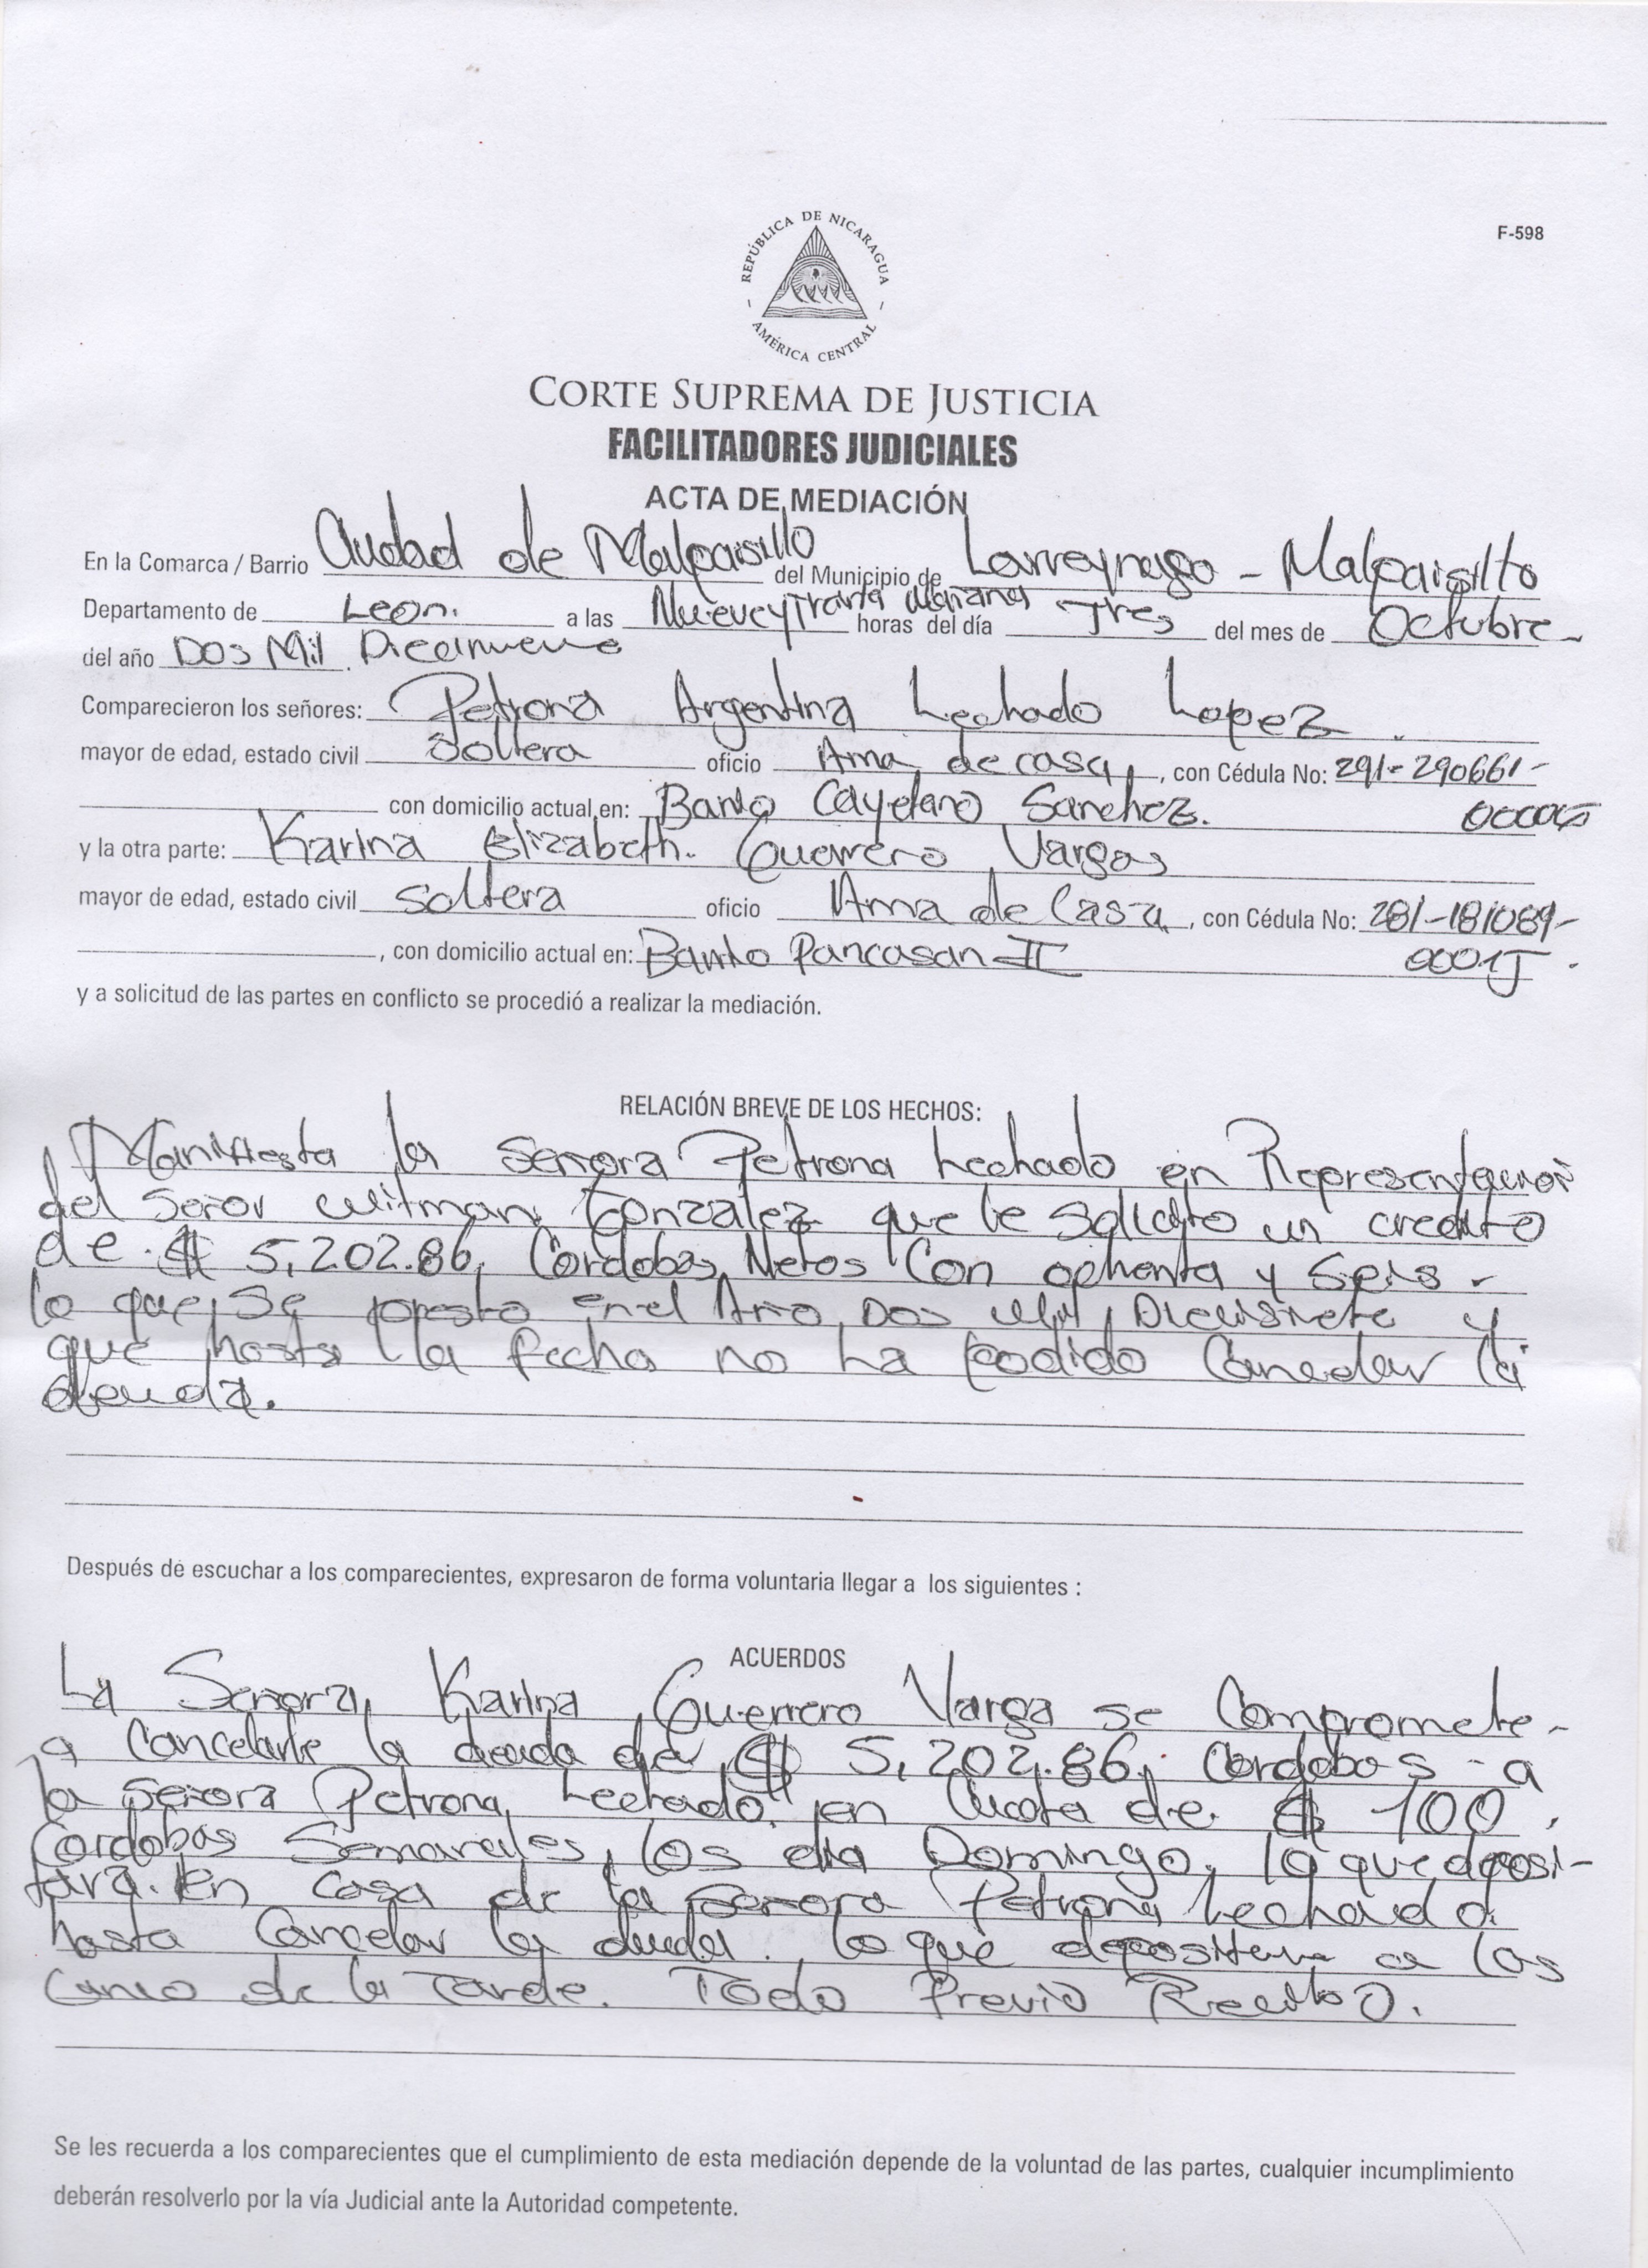 F-598
REPÚBLICA DE NICARAGUA
AMÉRICA CENTRAL
CORTE SUPREMA DE JUSTICIA
FACILITADORES JUDICIALES
ACTA DE MEDIACIÓN
En la Comarca / Barrio Ciudad de Malpaisillo del Municipio de Larreynaga - Malpaisillo
Departamento de Leon. a las Nueve y Treinta Mañana horas del día Tres del mes de Octubre -
del año Dos Mil Diecinueve
Comparecieron los señores: Petrona Argentina Lechado Lopez.
mayor de edad, estado civil Soltera oficio Ama de casa, con Cédula No: 291-290661-
con domicilio actual en: Barrio Cayetano Sanchez.
y la otra parte: Karina Elizabeth. Guerrero Vargas
mayor de edad, estado civil Soltera oficio Ama de Casa, con Cédula No: 281-181089-
, con domicilio actual en: Barrio Pancasan II 0001J.
y a solicitud de las partes en conflicto se procedió a realizar la mediación.
RELACIÓN BREVE DE LOS HECHOS:
Manifiesta la Señora Petrona Lechado en Representacion
del Señor Witman Gonzalez que le Solicito un credito
de C$ 5,202.86, Cordobas Netos Con ochenta y Seis -
lo que se presto en el Año Dos Mil Diecisiete y
que hasta la fecha no ha podido Cancelar la
deuda.
Después de escuchar a los comparecientes, expresaron de forma voluntaria llegar a los siguientes :
ACUERDOS
La Señora Karina Guerrero Varga se Compromete -
a Cancelarle la deuda de C$ 5,202.86, Cordobas - a
la Señora Petrona Lechado, en Cuota de C$ 100,
Cordobas Semanales, los dia Domingo, lo que deposi-
tara. en casa de la Señora Petrona Lechado
hasta Cancelar la deuda. lo que depositara a las
Cinco de la Tarde. Todo Previo Recibo.
Se les recuerda a los comparecientes que el cumplimiento de esta mediación depende de la voluntad de las partes, cualquier incumplimiento
deberán resolverlo por la vía Judicial ante la Autoridad competente.